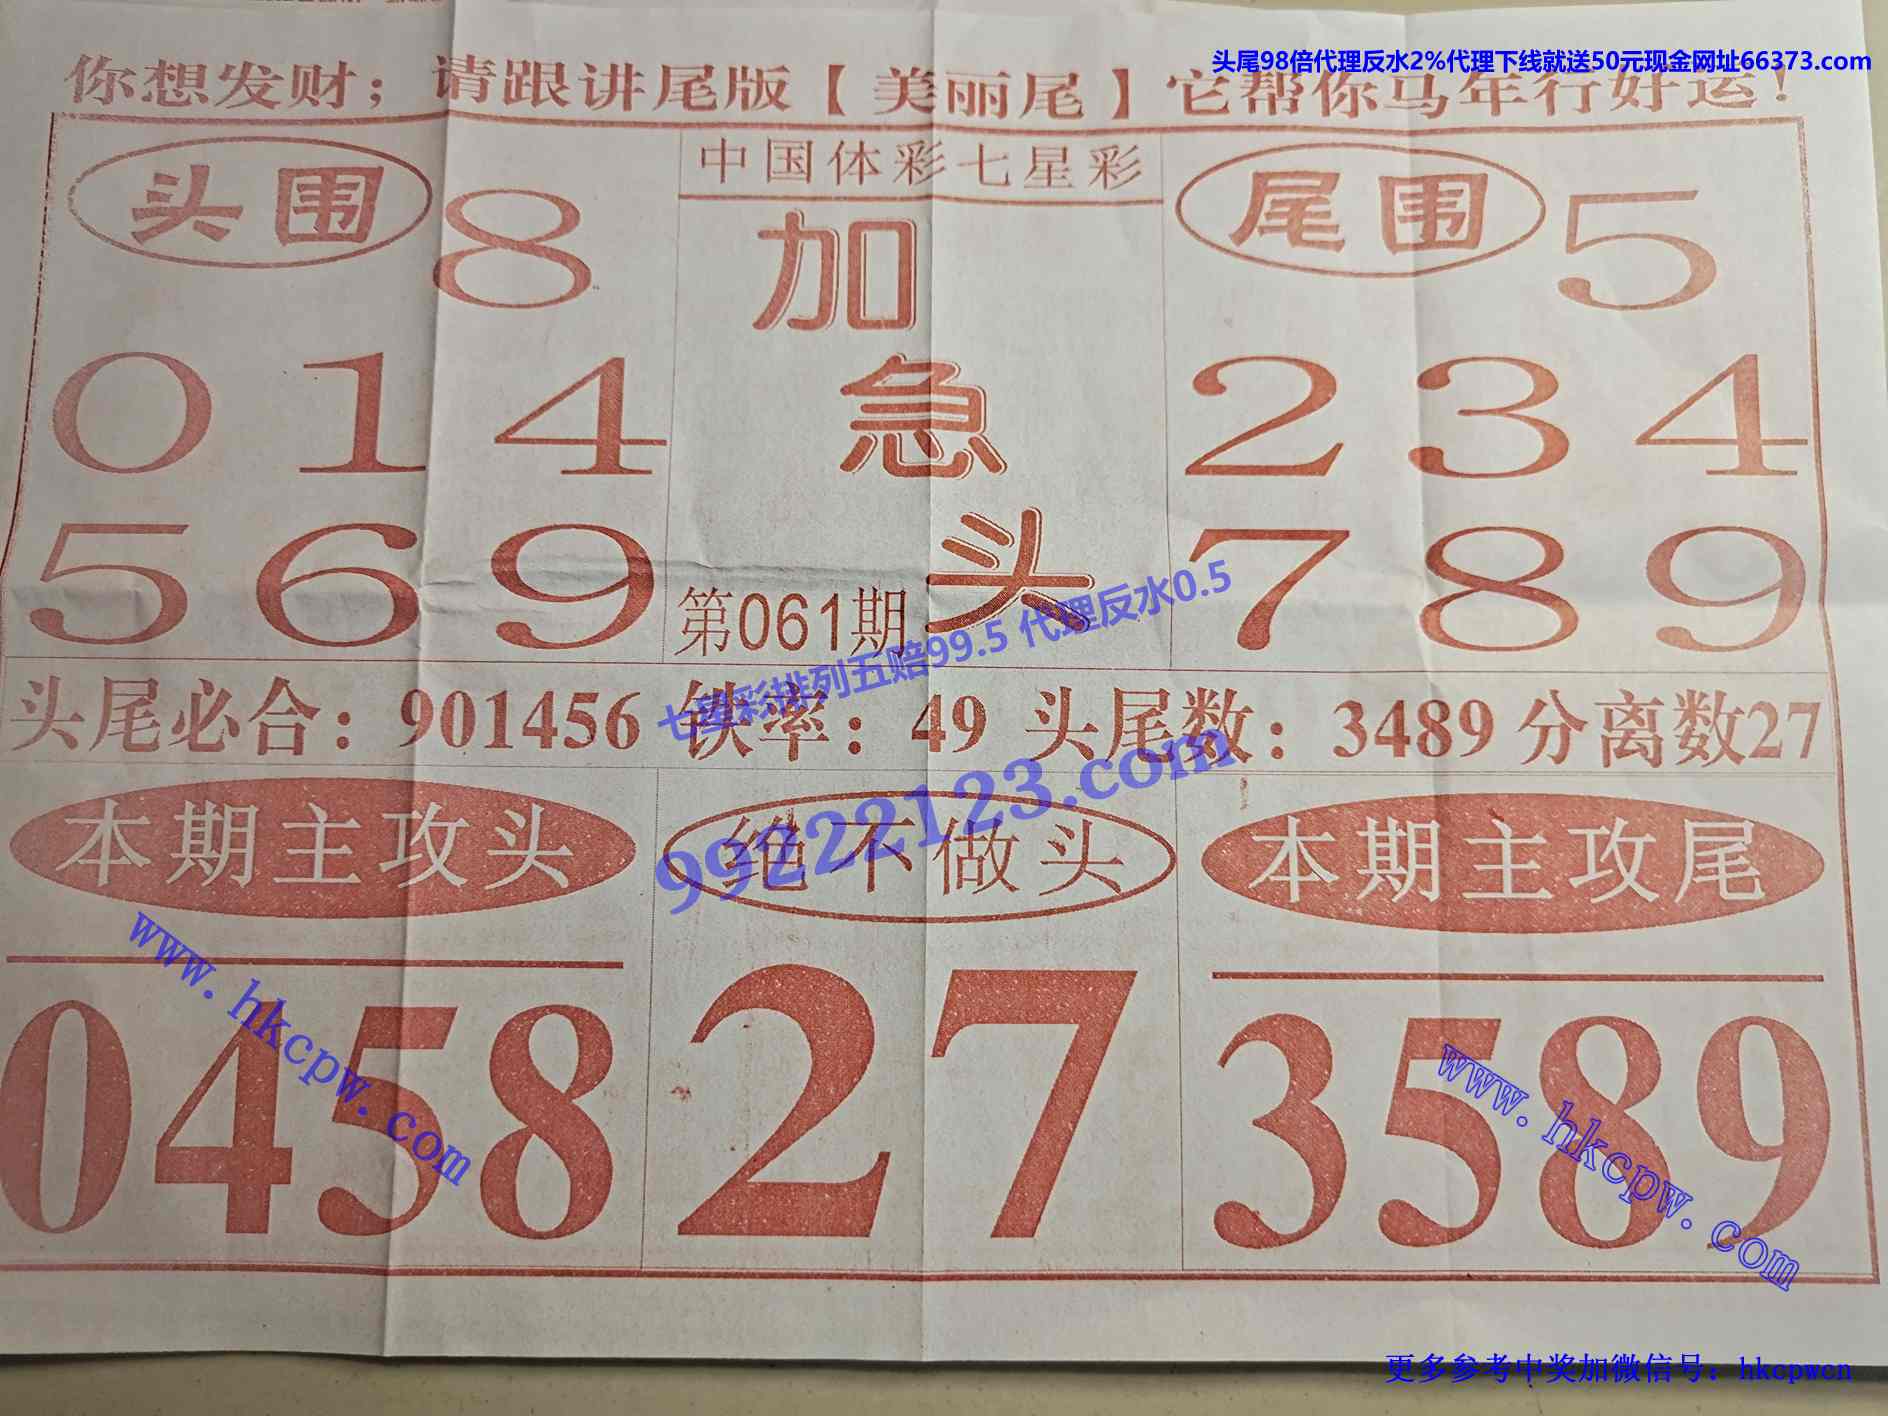 头尾98倍代理反水2%代理下线就送50元现金网址66373.com
你想发财；请跟讲尾版【美丽尾】它帮你马年行好运！
头围 8
0 1 4
5 6 9
中国体彩七星彩
加
急
头
第061期
尾围 5
2 3 4
7 8 9
七星彩排列五赔99.5 代理反水0.5
头尾必合：901456 铁率：49 头尾数：3489 分离数27
99222123.com
本期主攻头
0458
绝不做头
27
本期主攻尾
3589
www.hkcpw.com
www.hkcpw.com
更多参考中奖加微信号：hkcpwcn